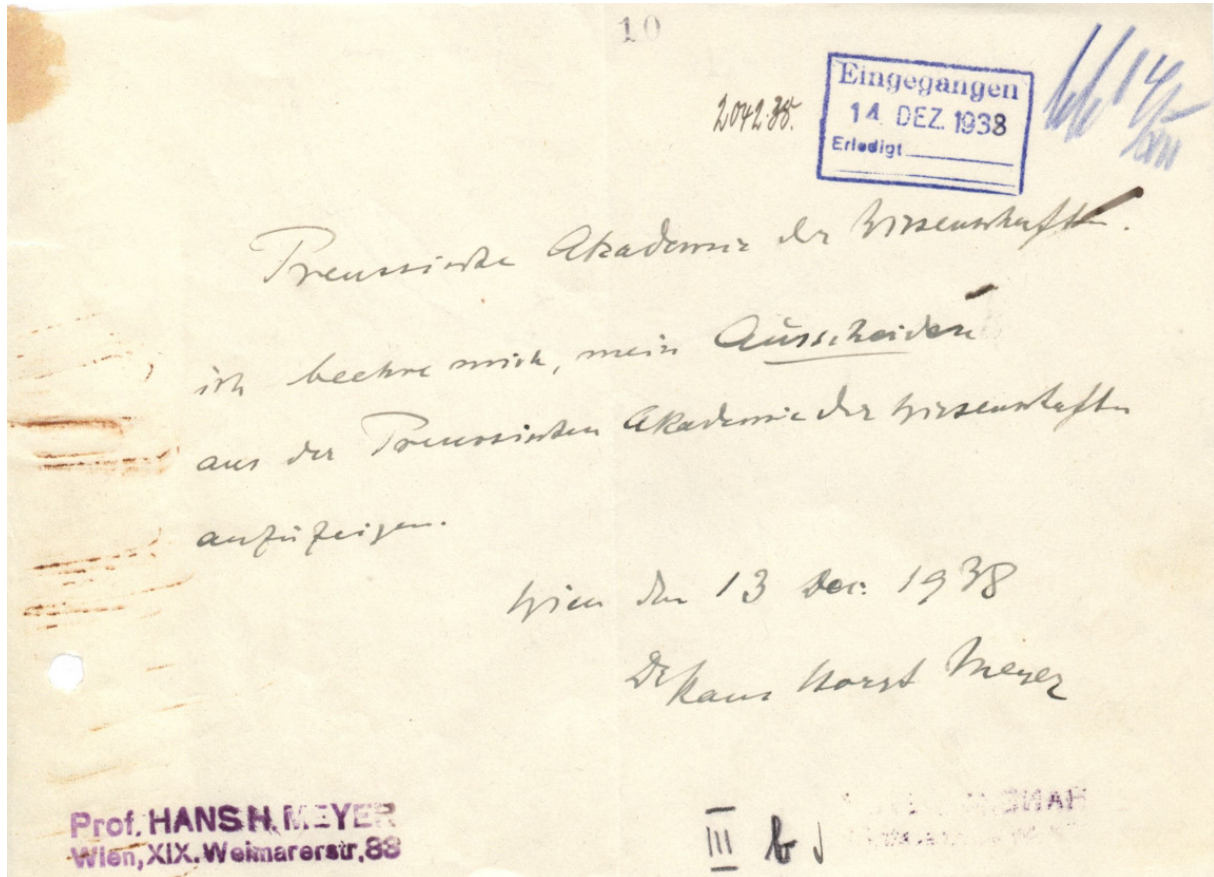 10
2042.38.
Eingegangen
14. DEZ. 1938
Erledigt
Preussische Akademie der Wissenschaften.
ich beehre mich, mein Ausscheiden
aus der Preussischen Akademie der Wissenschaften
anzuzeigen.
Wien den 13 Dec. 1938
Dr Hans Horst Meyer
Prof. HANS H. MEYER
Wien, XIX. Weimarerstr, 88
III b